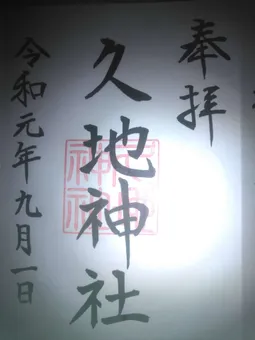 奉拝
久地神社
令和元年九月一日